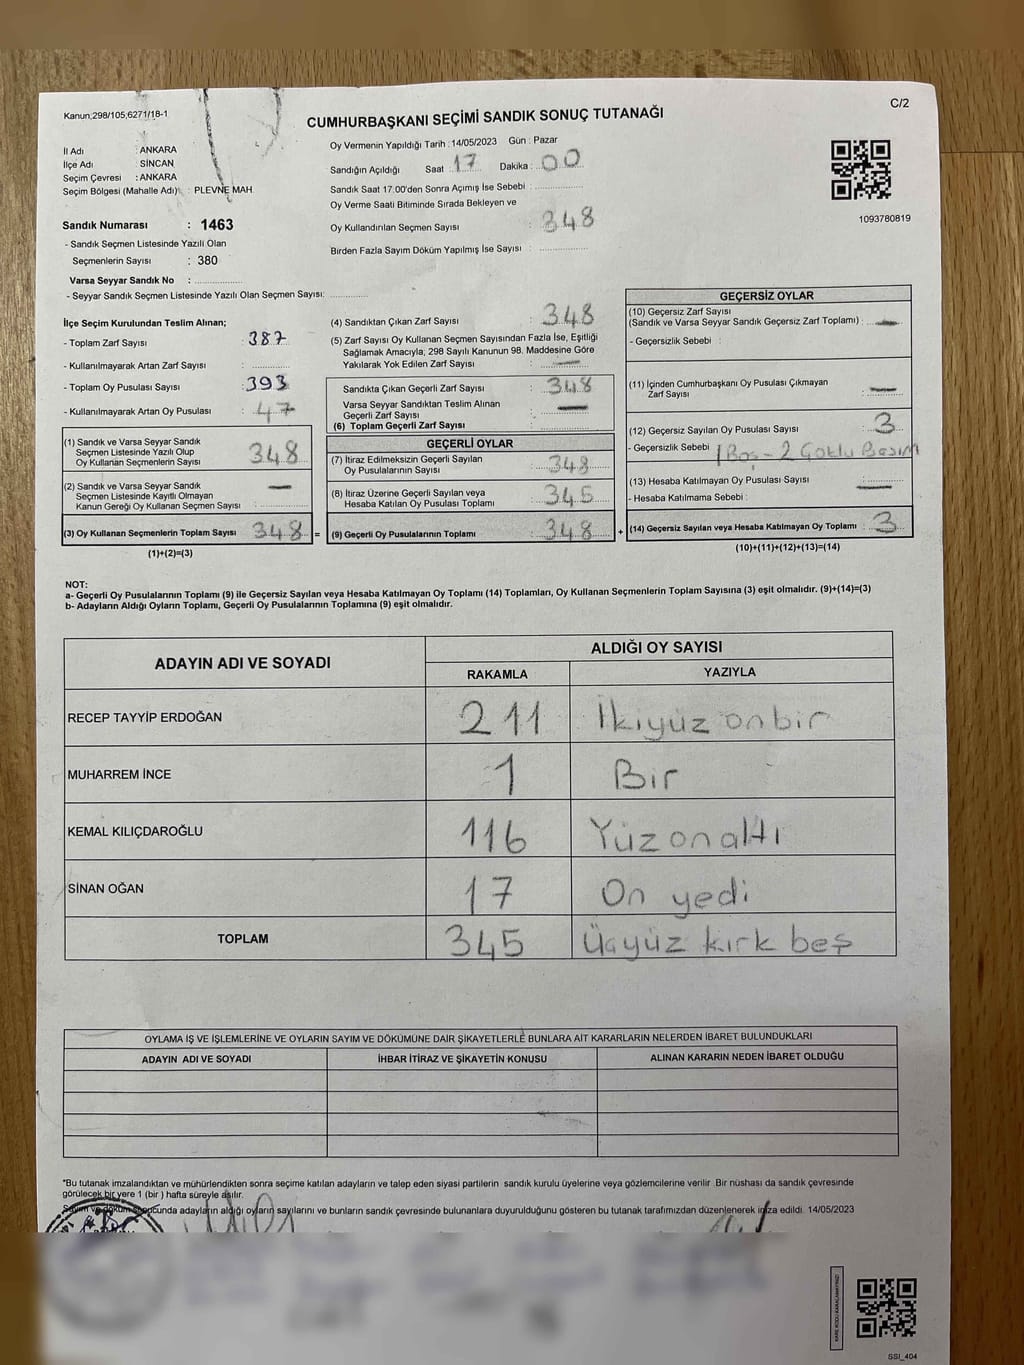 Kanun;298/105;6271/18-1
C/2
CUMHURBAŞKANI SEÇİMİ SANDIK SONUÇ TUTANAĞI
İl Adı : ANKARA
İlçe Adı : SİNCAN
Seçim Çevresi : ANKARA
Seçim Bölgesi (Mahalle Adı) : PLEVNE MAH.
Sandık Numarası : 1463
- Sandık Seçmen Listesinde Yazılı Olan
Seçmenlerin Sayısı : 380
Varsa Seyyar Sandık No :
- Seyyar Sandık Seçmen Listesinde Yazılı Olan Seçmen Sayısı:
Oy Vermenin Yapıldığı Tarih : 14/05/2023 Gün : Pazar
Sandığın Açıldığı Saat 17 Dakika : 00
Sandık Saat 17:00'den Sonra Açımış İse Sebebi :
Oy Verme Saati Bitiminde Sırada Bekleyen ve
Oy Kullandırılan Seçmen Sayısı : 348
Birden Fazla Sayım Döküm Yapılmış İse Sayısı :
1093780819
İlçe Seçim Kurulundan Teslim Alınan;
- Toplam Zarf Sayısı : 387
- Kullanılmayarak Artan Zarf Sayısı :
- Toplam Oy Pusulası Sayısı : 393
- Kullanılmayarak Artan Oy Pusulası : 47
(1) Sandık ve Varsa Seyyar Sandık
Seçmen Listesinde Yazılı Olup
Oy Kullanan Seçmenlerin Sayısı : 348
(2) Sandık ve Varsa Seyyar Sandık
Seçmen Listesinde Kayıtlı Olmayan
Kanun Gereği Oy Kullanan Seçmen Sayısı : —
(3) Oy Kullanan Seçmenlerin Toplam Sayısı 348 =
(1)+(2)=(3)
(4) Sandıktan Çıkan Zarf Sayısı : 348
(5) Zarf Sayısı Oy Kullanan Seçmen Sayısından Fazla İse, Eşitliği
Sağlamak Amacıyla, 298 Sayılı Kanunun 98. Maddesine Göre
Yakılarak Yok Edilen Zarf Sayısı : —
Sandıkta Çıkan Geçerli Zarf Sayısı : 348
Varsa Seyyar Sandıktan Teslim Alınan
Geçerli Zarf Sayısı : —
(6) Toplam Geçerli Zarf Sayısı :
GEÇERLİ OYLAR
(7) İtiraz Edilmeksizin Geçerli Sayılan
Oy Pusulalarının Sayısı : 348
(8) İtiraz Üzerine Geçerli Sayılan veya
Hesaba Katılan Oy Pusulası Toplamı : 345
(9) Geçerli Oy Pusulalarının Toplamı : 348 +
GEÇERSİZ OYLAR
(10) Geçersiz Zarf Sayısı
(Sandık ve Varsa Seyyar Sandık Geçersiz Zarf Toplamı) : —
- Geçersizlik Sebebi :
(11) İçinden Cumhurbaşkanı Oy Pusulası Çıkmayan
Zarf Sayısı : —
(12) Geçersiz Sayılan Oy Pusulası Sayısı : 3
- Geçersizlik Sebebi 1 Boş - 2 Çoklu Basım
(13) Hesaba Katılmayan Oy Pusulası Sayısı : —
- Hesaba Katılmama Sebebi :
(14) Geçersiz Sayılan veya Hesaba Katılmayan Oy Toplamı : 3
(10)+(11)+(12)+(13)=(14)
NOT:
a- Geçerli Oy Pusulalarının Toplamı (9) ile Geçersiz Sayılan veya Hesaba Katılmayan Oy Toplamı (14) Toplamları, Oy Kullanan Seçmenlerin Toplam Sayısına (3) eşit olmalıdır. (9)+(14)=(3)
b- Adayların Aldığı Oyların Toplamı, Geçerli Oy Pusulalarının Toplamına (9) eşit olmalıdır.
ADAYIN ADI VE SOYADI
ALDIĞI OY SAYISI
RAKAMLA YAZIYLA
RECEP TAYYİP ERDOĞAN 211 İkiyüz onbir
MUHARREM İNCE 1 Bir
KEMAL KILIÇDAROĞLU 116 Yüz onaltı
SİNAN OĞAN 17 On yedi
TOPLAM 345 Üçyüz kırk beş
OYLAMA İŞ VE İŞLEMLERİNE VE OYLARIN SAYIM VE DÖKÜMÜNE DAİR ŞİKAYETLERLE BUNLARA AİT KARARLARIN NELERDEN İBARET BULUNDUKLARI
ADAYIN ADI VE SOYADI İHBAR İTİRAZ VE ŞİKAYETİN KONUSU ALINAN KARARIN NEDEN İBARET OLDUĞU
*Bu tutanak imzalandıktan ve mühürlendikten sonra seçime katılan adayların ve talep eden siyasi partilerin sandık kurulu üyelerine veya gözlemcilerine verilir. Bir nüshası da sandık çevresinde
görülecek bir yere 1 (bir ) hafta süreyle asılır.
Sayım ve döküm sonucunda adayların aldığı oyların sayılarını ve bunların sandık çevresinde bulunanlara duyurulduğunu gösteren bu tutanak tarafımızdan düzenlenerek imza edildi. 14/05/2023
SSI_404